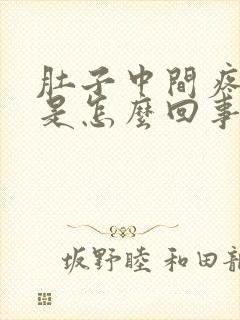 肚子中間疼
是怎麼回事
坂野睦 和田龍